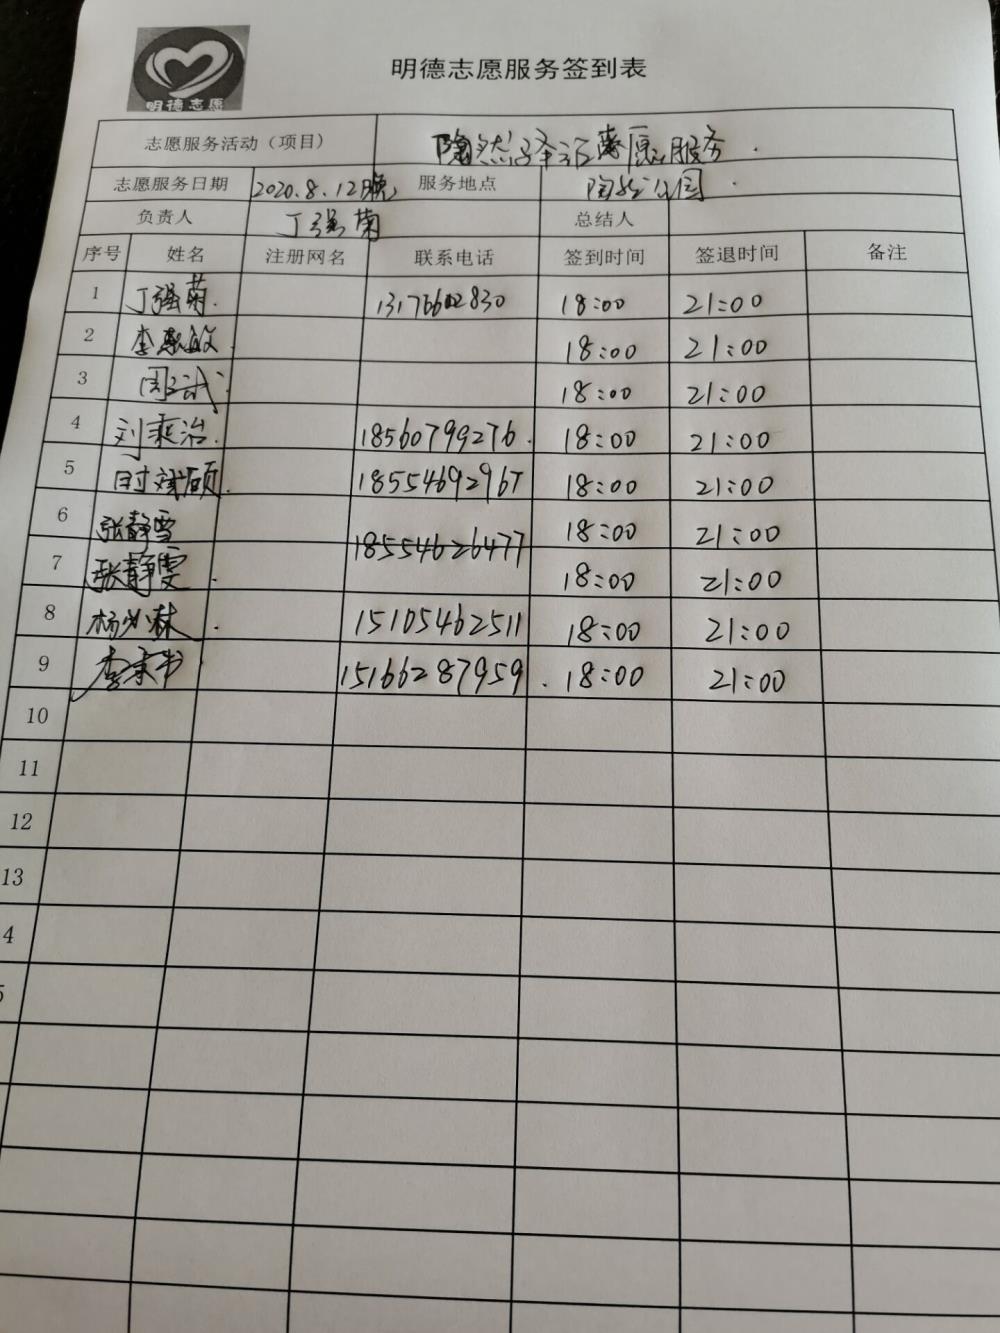 明德志愿
明德志愿服务签到表
志愿服务活动（项目） 陶然泽志愿服务
志愿服务日期 2020.8.12晚 服务地点 陶然公园
负责人 丁强菊 总结人
序号 姓名 注册网名 联系电话 签到时间 签退时间 备注
1 丁强菊 18:00 21:00
2 18:00 21:00
3 周斌 18:00 21:00
4 刘乘治 18560799276 18:00 21:00
5 18554692967 18:00 21:00
6 张静雪 18554626477 18:00 21:00
7 张静雯 18:00 21:00
8 15105462511 18:00 21:00
9 15166287959 18:00 21:00
10
11
12
13
4
5